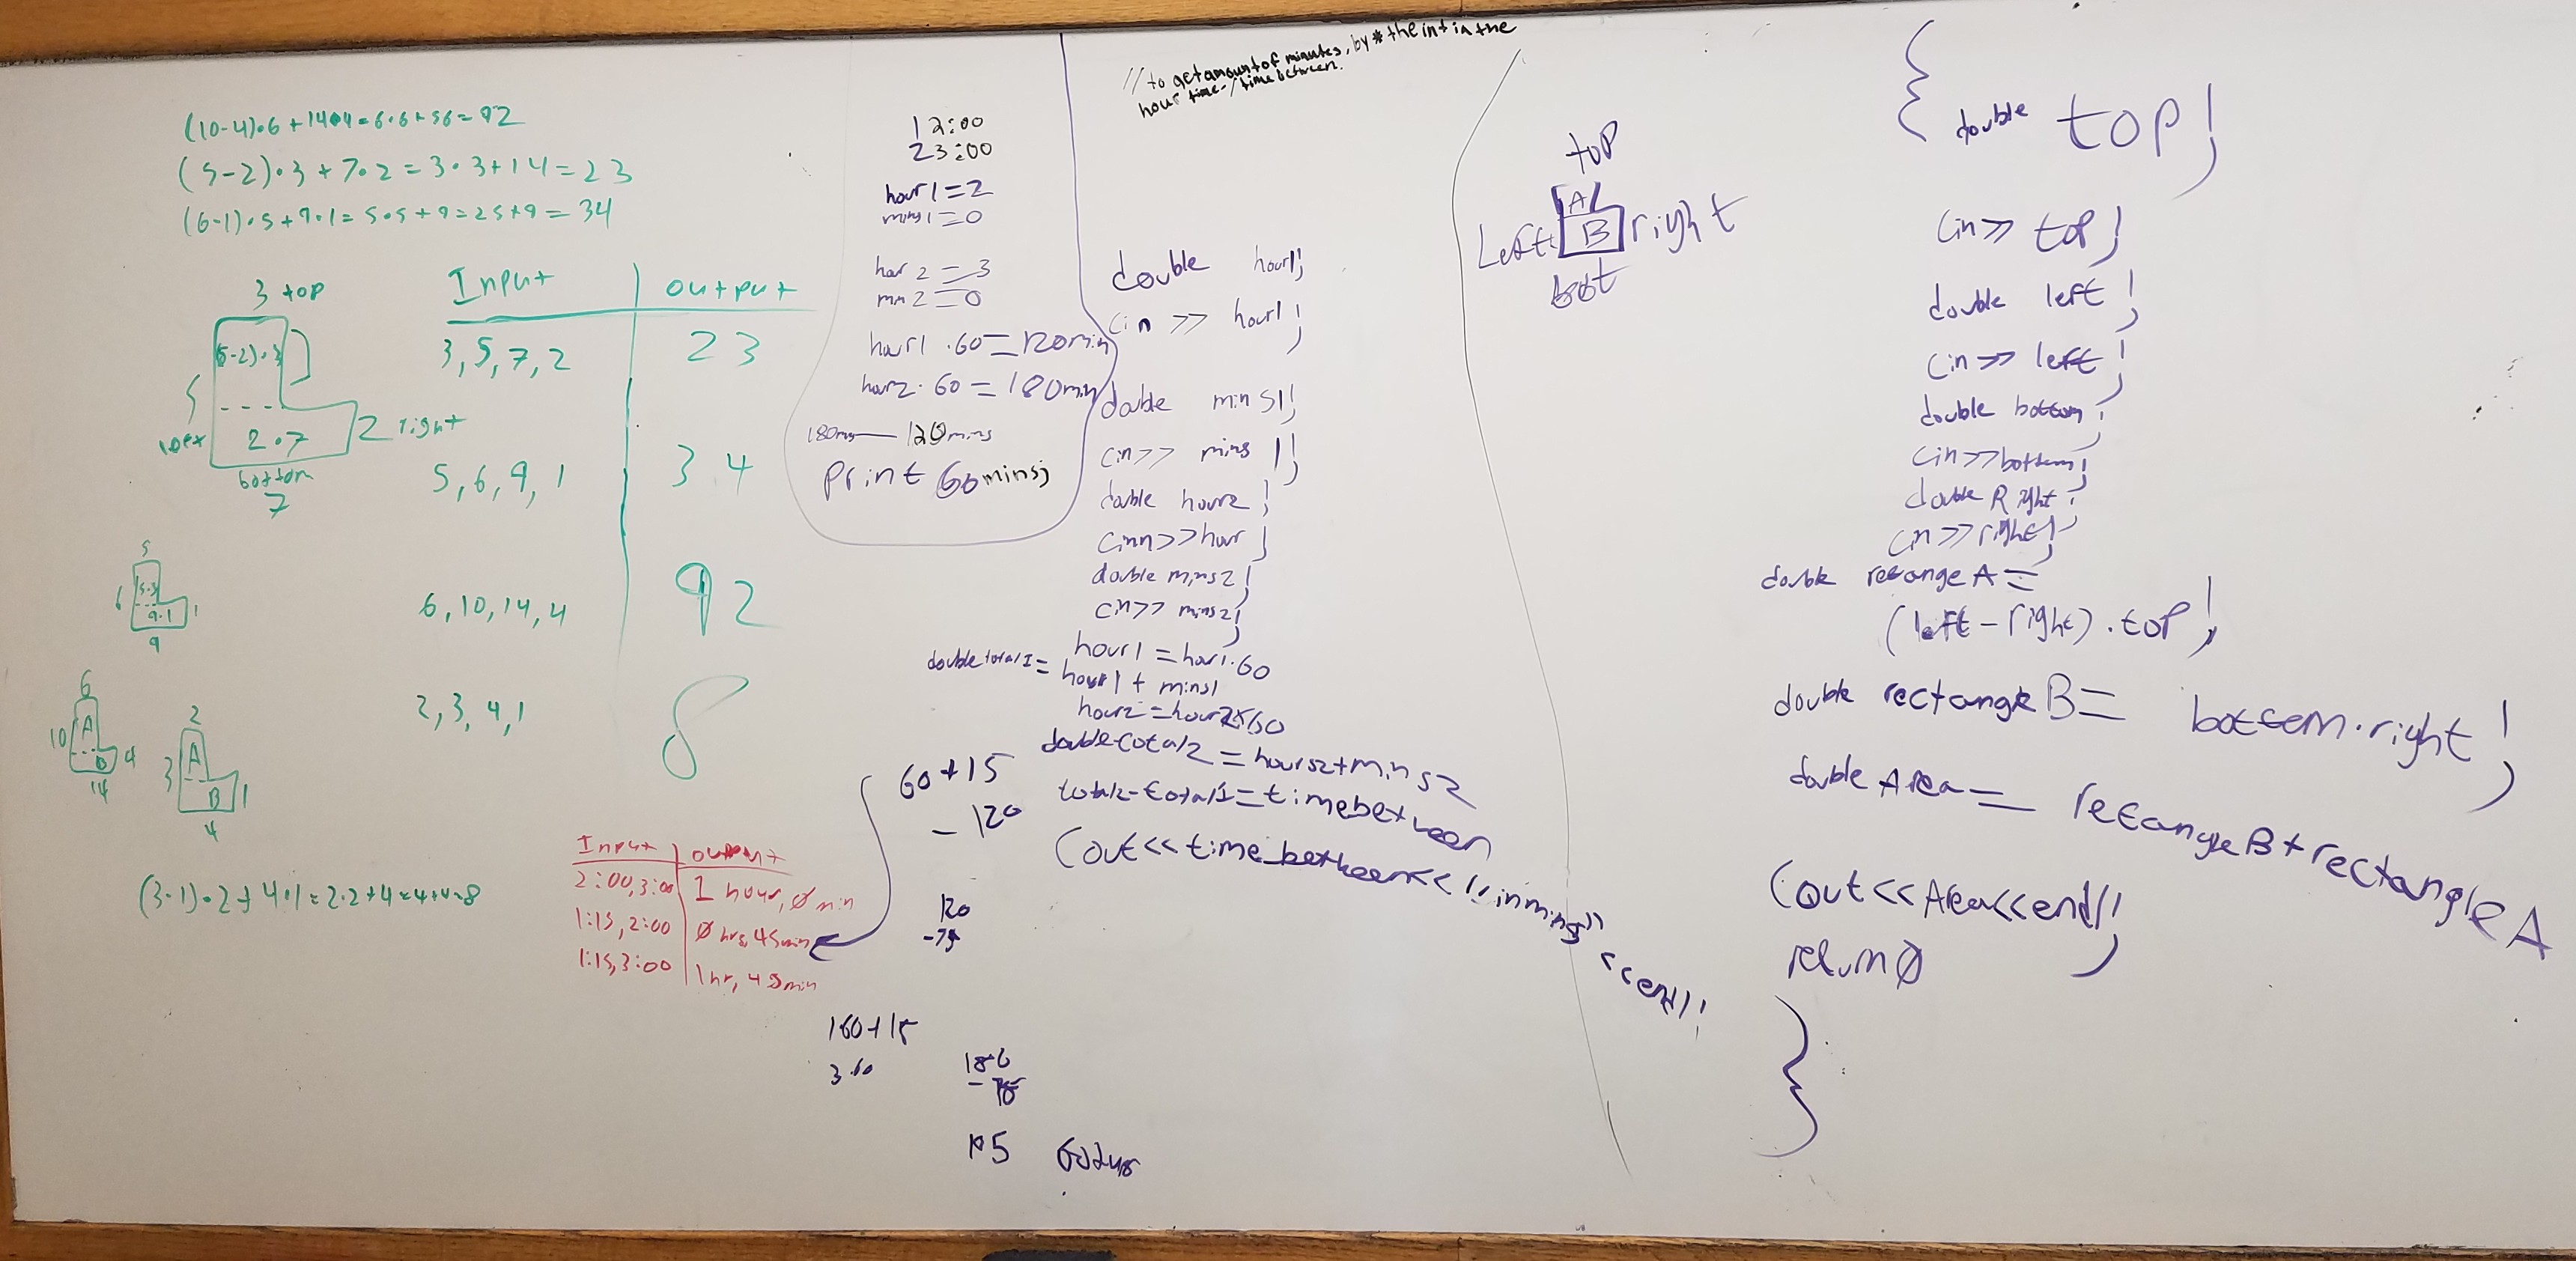 (10-4)•6 + 14•4 = 6•6 + 56 = 92
(5-2)•3 + 7•2 = 3•3+14 = 23
(6-1)•5 + 9•1 = 5•5 + 9 = 25+9 = 34
3 top
(5-2)•3
5
2•7
2 right
bottom
7
Input | output
3,5,7,2 | 23
5,6,9,1 | 34
6,10,14,4 | 92
2,3,4,1 | 8
5
6
9•1
1
9
6
10
A
B
4
14
2
3
A
B
1
4
(3-1)•2 + 4•1 = 2•2 + 4 = 4+4=8
Input | output
2:00,3:00 | 1 hour, 0 min
1:15,2:00 | 0 hrs, 45min
1:15,3:00 | 1hr, 45min
12:00
23:00
hour1=2
mins1=0
hor 2 = 3
mn 2 = 0
hour1 •60=120min
hour2•60 = 180min
180mns — 120mins
print 60mins;
60+15
- 120
120
-75
3•60
// to get amount of minutes, by * the int in the
hour time-/time between.
double hour1;
cin >> hour1;
double mins1;
cin>> mins1;
double hour2;
cinn>>hour;
double mins2;
cin>> mins2;
hour1 = hour1•60
double total1 = hour1 + mins1
hour2 = hour2*60
double total2 = hours2+mins2
total2-total1=timebetween
Cout<<time between<<"in mins"<<endl;
top
A
Left
B
right
bot
{
double top;
Cin>> top;
double left;
Cin>> left;
double bottom;
Cin>>bottom;
double Right;
Cin>>right;
double retangeA=
(left-right)•top;
double rectangleB= bottom•right;
double Area= retangleB+rectangleA
Cout<<Area<<endl;
return 0
}